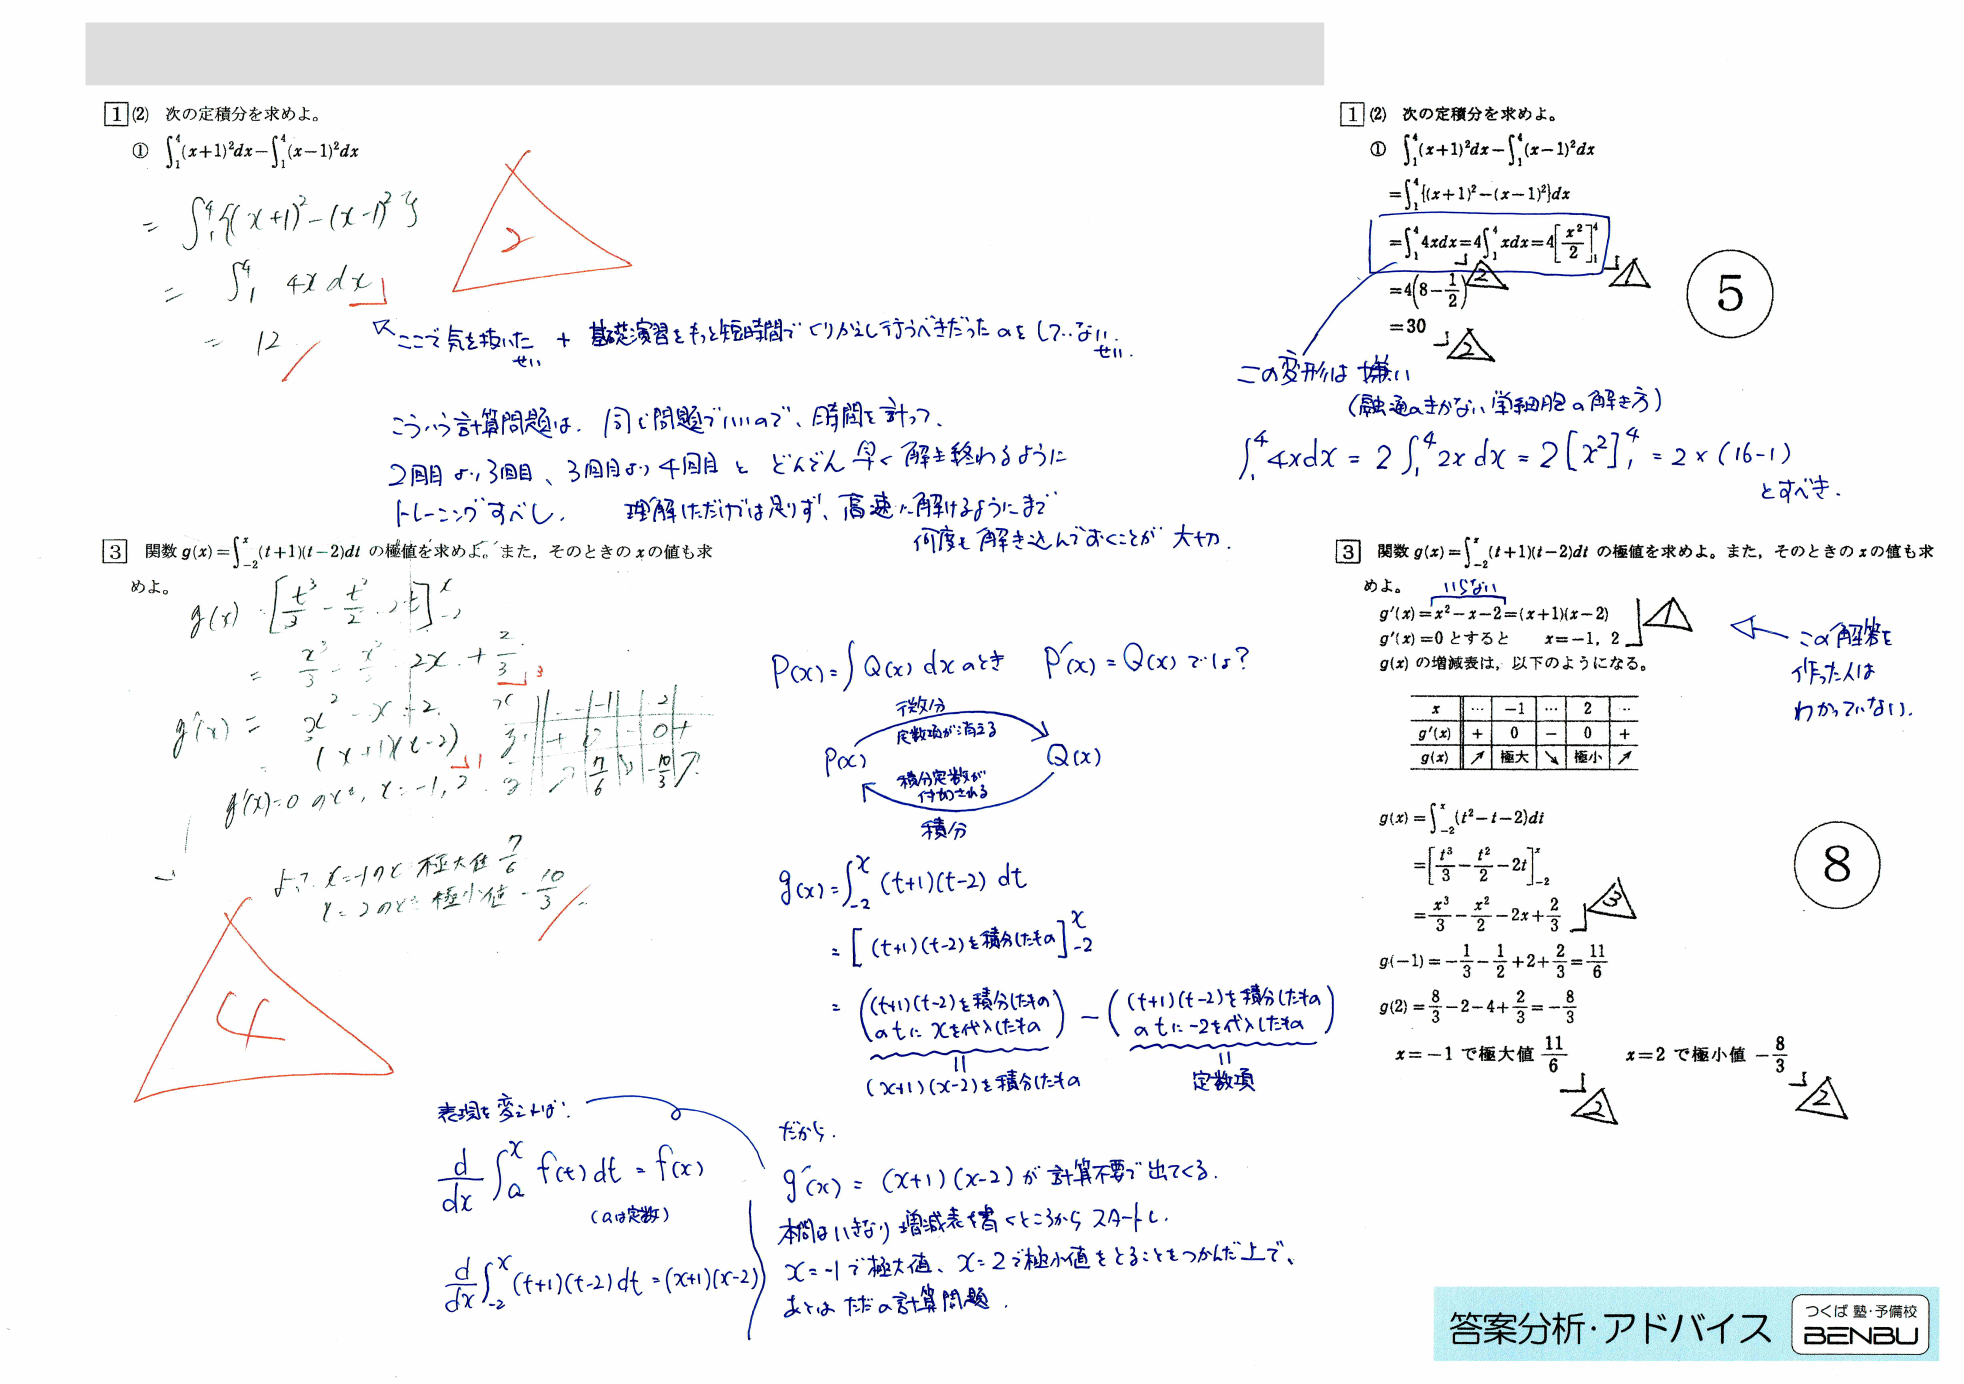 1 (2) 次の定積分を求めよ。
① ∫₁⁴(x+1)²dx−∫₁⁴(x−1)²dx
= ∫₁⁴{(x+1)²−(x−1)²}
= ∫₁⁴ 4x dx
= 12
2
ここで気を抜いたせい + 基礎演習をもっと短時間でくりかえし行うべきだったのをしていないせい.
こういう計算問題は、同じ問題でいいので、時間を計って、
2回目より3回目、3回目より4回目と どんどん早く解き終わるように
トレーニングすべし. 理解しただけでは足りず、高速に解けるようにまで
何度も解き込んでおくことが大切.
3 関数 g(x)=∫₋₂ˣ(t+1)(t−2)dt の極値を求めよ。また,そのときの x の値も求
めよ。
g(x) = [t³/3 − t²/2 − 2t]ˣ₋₂
= x³/3 − x²/2 − 2x + 2/3
3
g'(x) = x² − x − 2
= (x+1)(x−2)
1
g'(x)=0 のとき, x=−1, 2
x … −1 … 2
g' + 0 − 0 +
g ↗ 7/6 ↘ −10/3 ↗
よって x=−1のとき 極大値 7/6
x=2のとき 極小値 −10/3
4
P(x)=∫Q(x) dx のとき P'(x)=Q(x) でしょ?
微分
定数項が消える
P(x) Q(x)
積分定数が
付加される
積分
g(x)=∫₋₂ˣ(t+1)(t−2) dt
= [(t+1)(t−2)を積分したもの]ˣ₋₂
= ((t+1)(t−2)を積分したものの tに xを代入したもの) − ((t+1)(t−2)を積分したものの tに −2を代入したもの)
|| ||
(x+1)(x−2)を積分したもの 定数項
だから.
g'(x) = (x+1)(x−2) が 計算不要で出てくる.
本問はいきなり増減表を書くところからスタートし.
x=−1で極大値、x=2で極小値をとることをつかんだ上で、
あとはただの計算問題.
表現を変えれば.
d/dx ∫ₐˣ f(t) dt = f(x)
(aは定数)
d/dx ∫₋₂ˣ(t+1)(t−2) dt = (x+1)(x−2)
1 (2) 次の定積分を求めよ。
① ∫₁⁴(x+1)²dx−∫₁⁴(x−1)²dx
=∫₁⁴{(x+1)²−(x−1)²}dx
=∫₁⁴4xdx=4∫₁⁴xdx=4[x²/2]₁⁴
2
1
=4(8−1/2)
=30
2
5
この変形は嫌い
(融通のきかない単細胞の解き方)
∫₁⁴4xdx = 2∫₁⁴2x dx = 2[x²]₁⁴ = 2×(16−1)
とすべき.
3 関数 g(x)=∫₋₂ˣ(t+1)(t−2)dt の極値を求めよ。また,そのときの x の値も求
めよ。
いらない
g'(x)=x²−x−2=(x+1)(x−2)
1
g'(x)=0 とすると x=−1, 2
g(x) の増減表は,以下のようになる。
この解答を
作った人は
わかっていない.
x … −1 … 2 …
g'(x) + 0 − 0 +
g(x) ↗ 極大 ↘ 極小 ↗
g(x)=∫₋₂ˣ(t²−t−2)dt
=[t³/3−t²/2−2t]ˣ₋₂
=x³/3−x²/2−2x+2/3
3
8
g(−1)=−1/3−1/2+2+2/3=11/6
g(2)=8/3−2−4+2/3=−8/3
x=−1 で極大値 11/6 x=2 で極小値 −8/3
2
2
答案分析・アドバイス
つくば 塾・予備校
BENBU